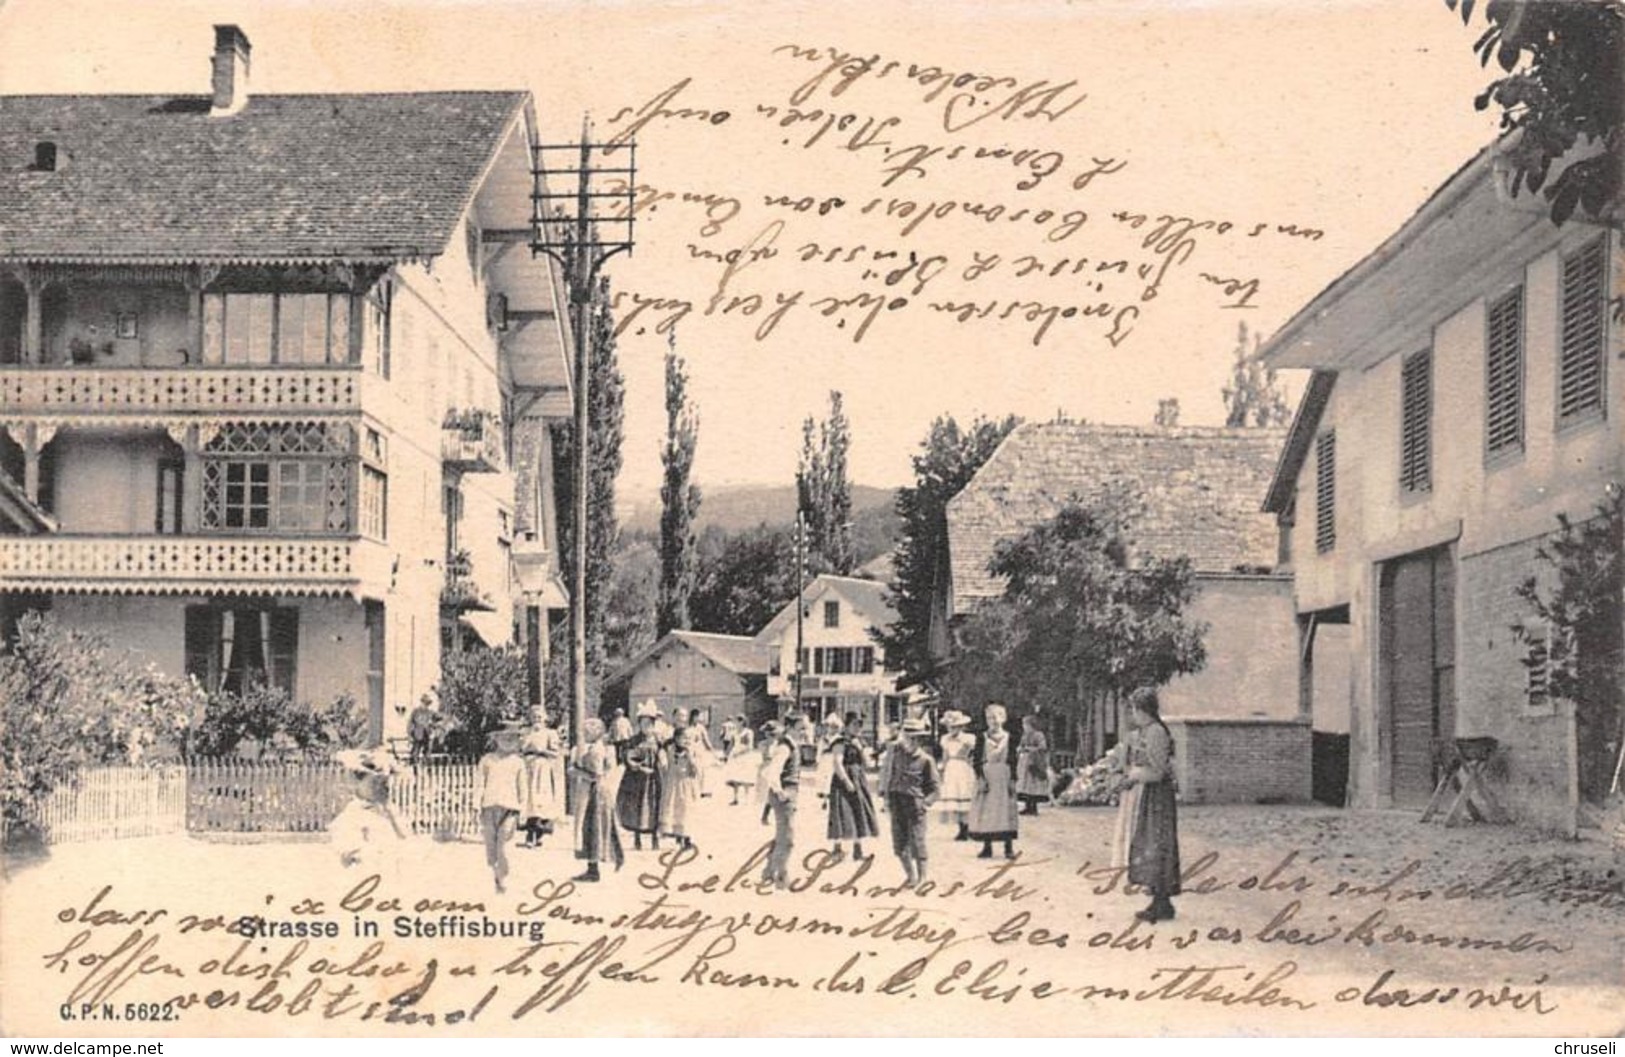 Liebe Schwester. Teile dir schnell mit
dass wir x ba am Samstag vormittag bei dir vorbeikommen
hoffen dich also zu treffen kann dir l. Elise mitteilen dass wir
verlobt sind
Indessen die herzlichs
ten Grüsse & Küsse von
uns allen besonders von Emilie
& Ernst. Adieu aufs
Wiedersehn
Strasse in Steffisburg
C. P. N. 5622.
www.delcampe.net
chruseli